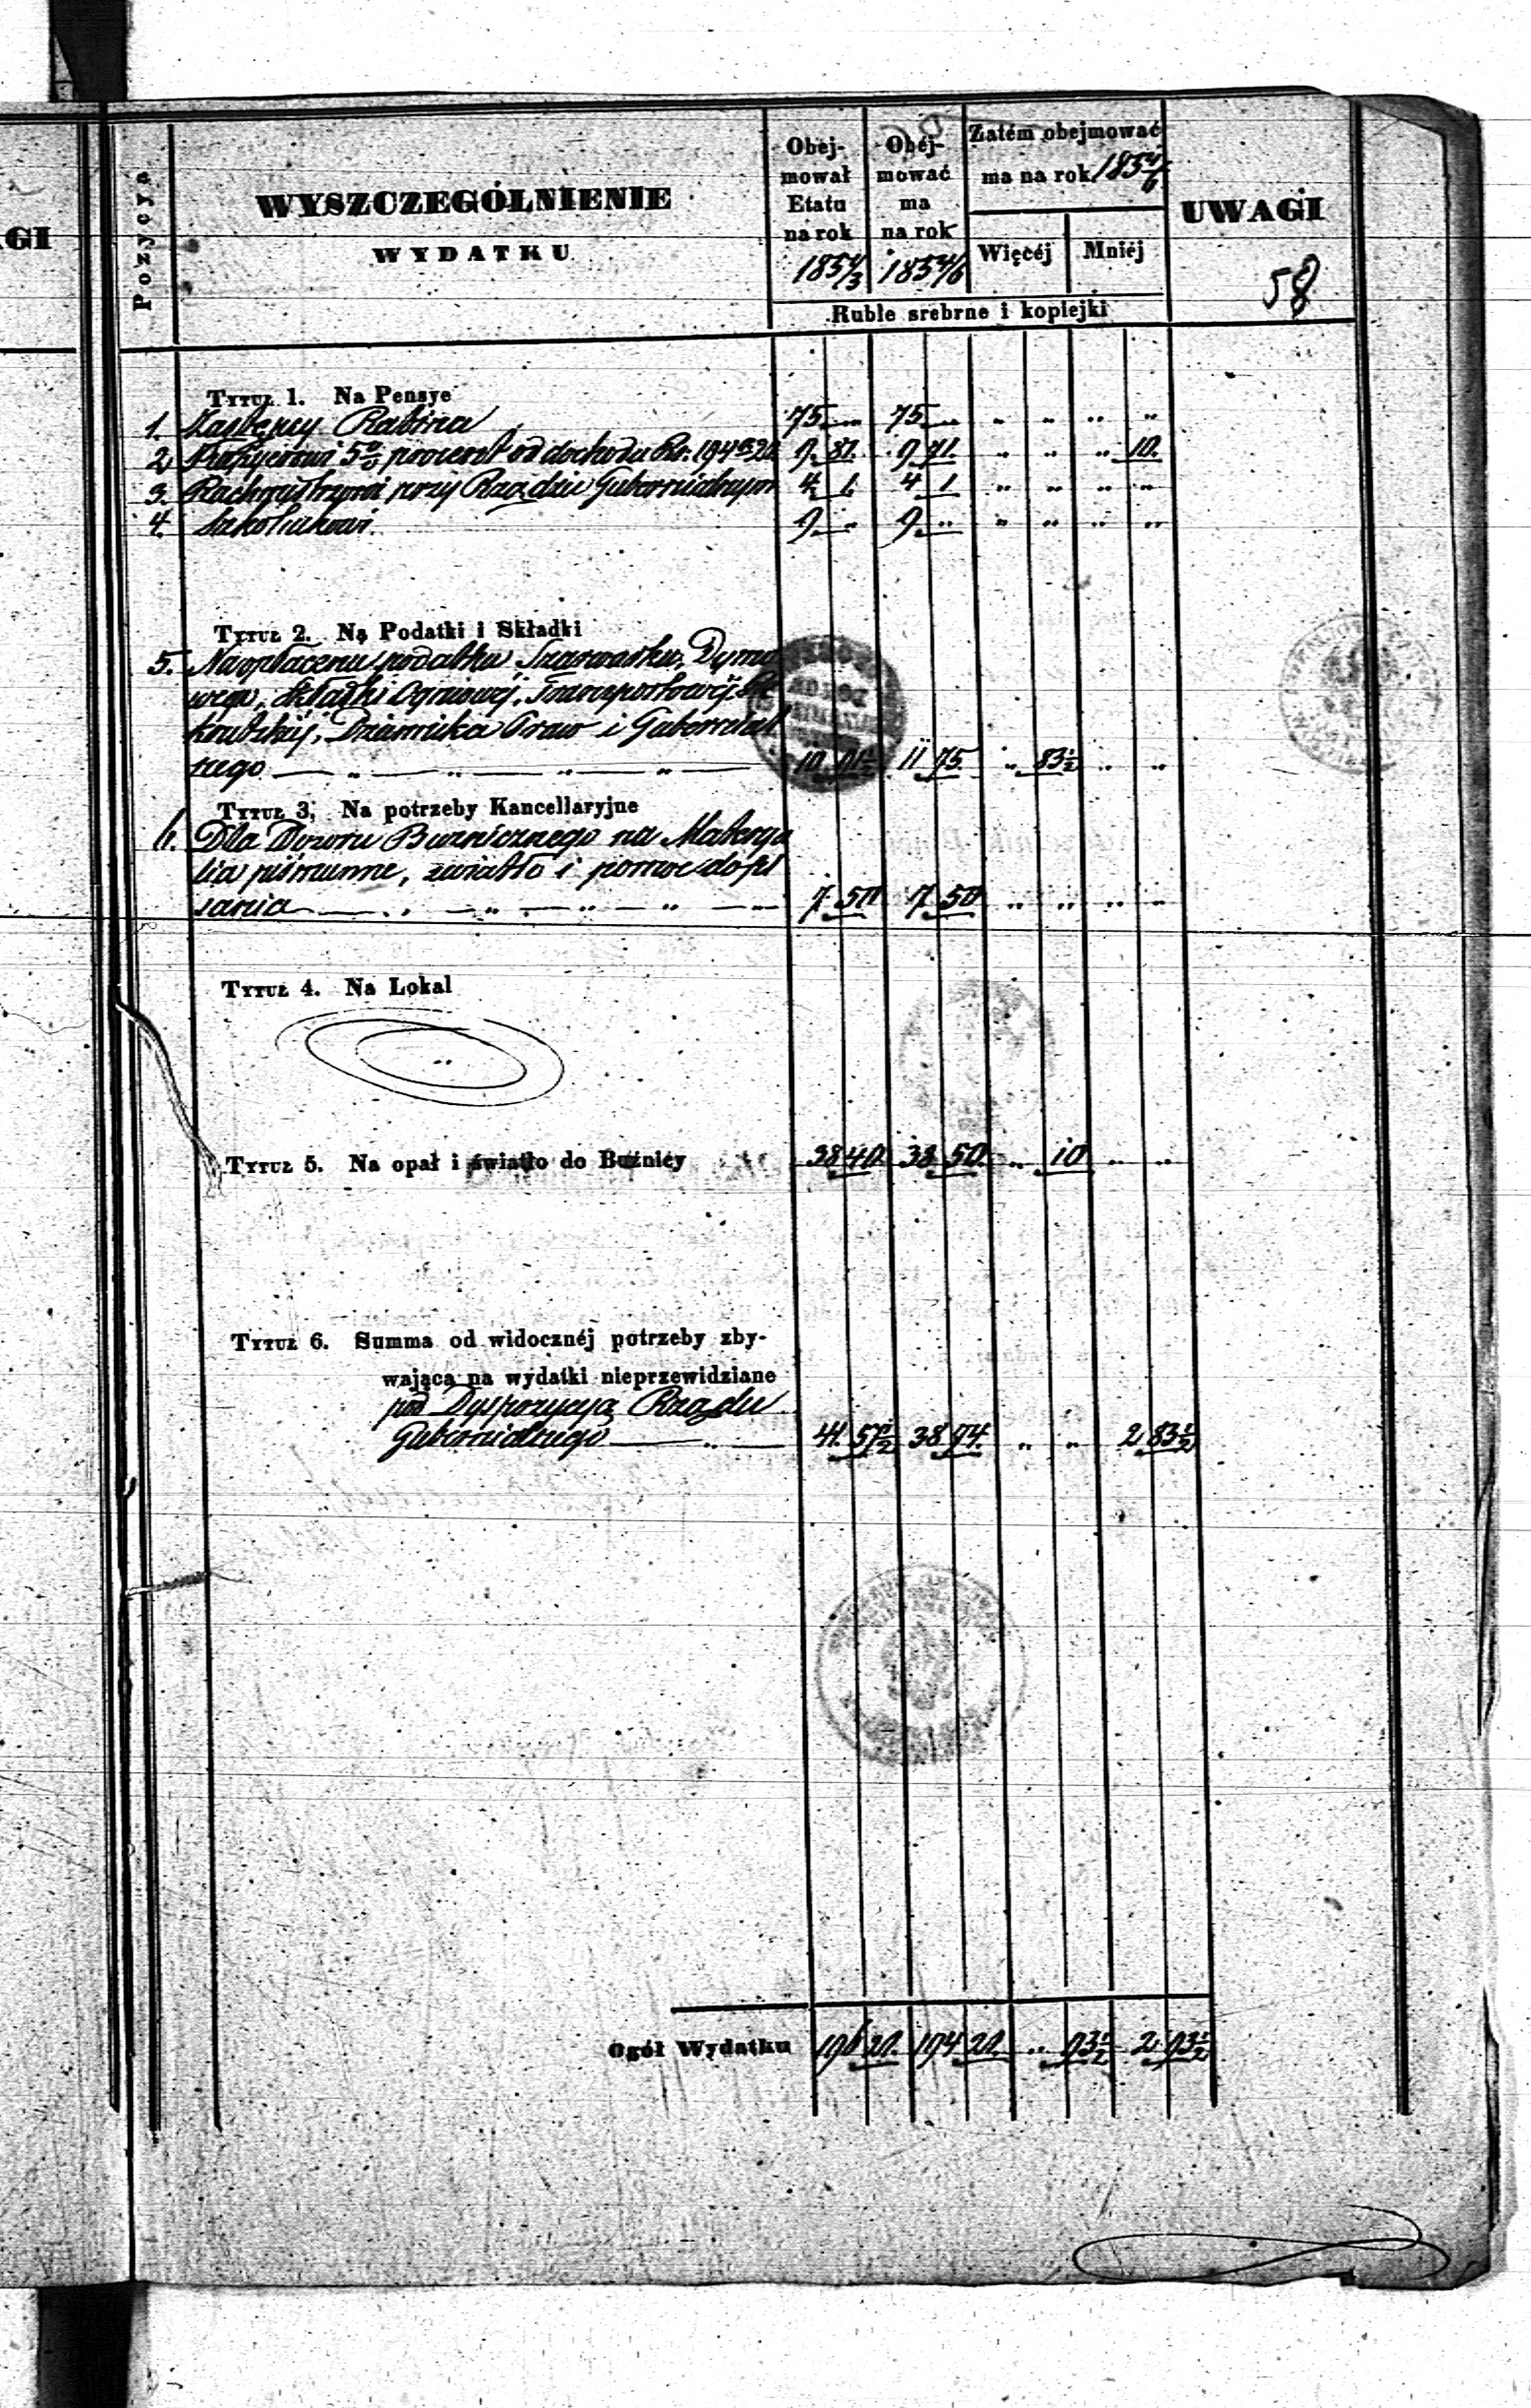 GI
Pozycya
WYSZCZEGÓLNIENIE
WYDATKU
Obej-
mował
Etatu
na rok
1854/3
Obej-
mować
ma
na rok
1854/6
Zatém obejmować
ma na rok 1854/6
Więcéj Mniéj
Ruble srebrne i kopiejki
UWAGI
58
Tytuł 1. Na Pensye
1. Zastępcy Rabina 75 „ 75 „ „ „ „ „
2. 5% procent od dochodu Rs. 194 k 20 9. 81. 9 71. „ „ „ 10.
3. Rachmistrzowi przy Rządzie Gubernialnym 4 1. 4 1 „ „ „ „
4. Szkolnikowi. 9 „ 9 „ „ „ „ „
Tytuł 2. Na Podatki i Składki
5. Na opłacenie podatku Szarwarku, Dymo
wego, Składki Ogniowej, Transportowéj, Re
kruckiéj, Dziennika Praw i Gubernial
nego — „ — „ — „ — „ — 10 91½ 11 75. „ 83½ „ „
Tytuł 3. Na potrzeby Kancellaryjne
6. Dla Dozoru Bużnicznego na Materya
lia piśmienne, światło i pomoc do pi
sania — „ — „ — „ — „ — 7. 50 7 50 „ „ „ „
Tytuł 4. Na Lokal
„
Tytuł 5. Na opał i światło do Bużnicy 38 40. 38 50. „ 10 „ „
Tytuł 6. Summa od widocznéj potrzeby zby-
wająca na wydatki nieprzewidziane
pod Dyspozycyą Rządu
Gubernialnego — „ — 41. 57½ 38 74. „ „ 2 83½
Ogół Wydatku 196 20. 194 20. „ 93½ 2 93½